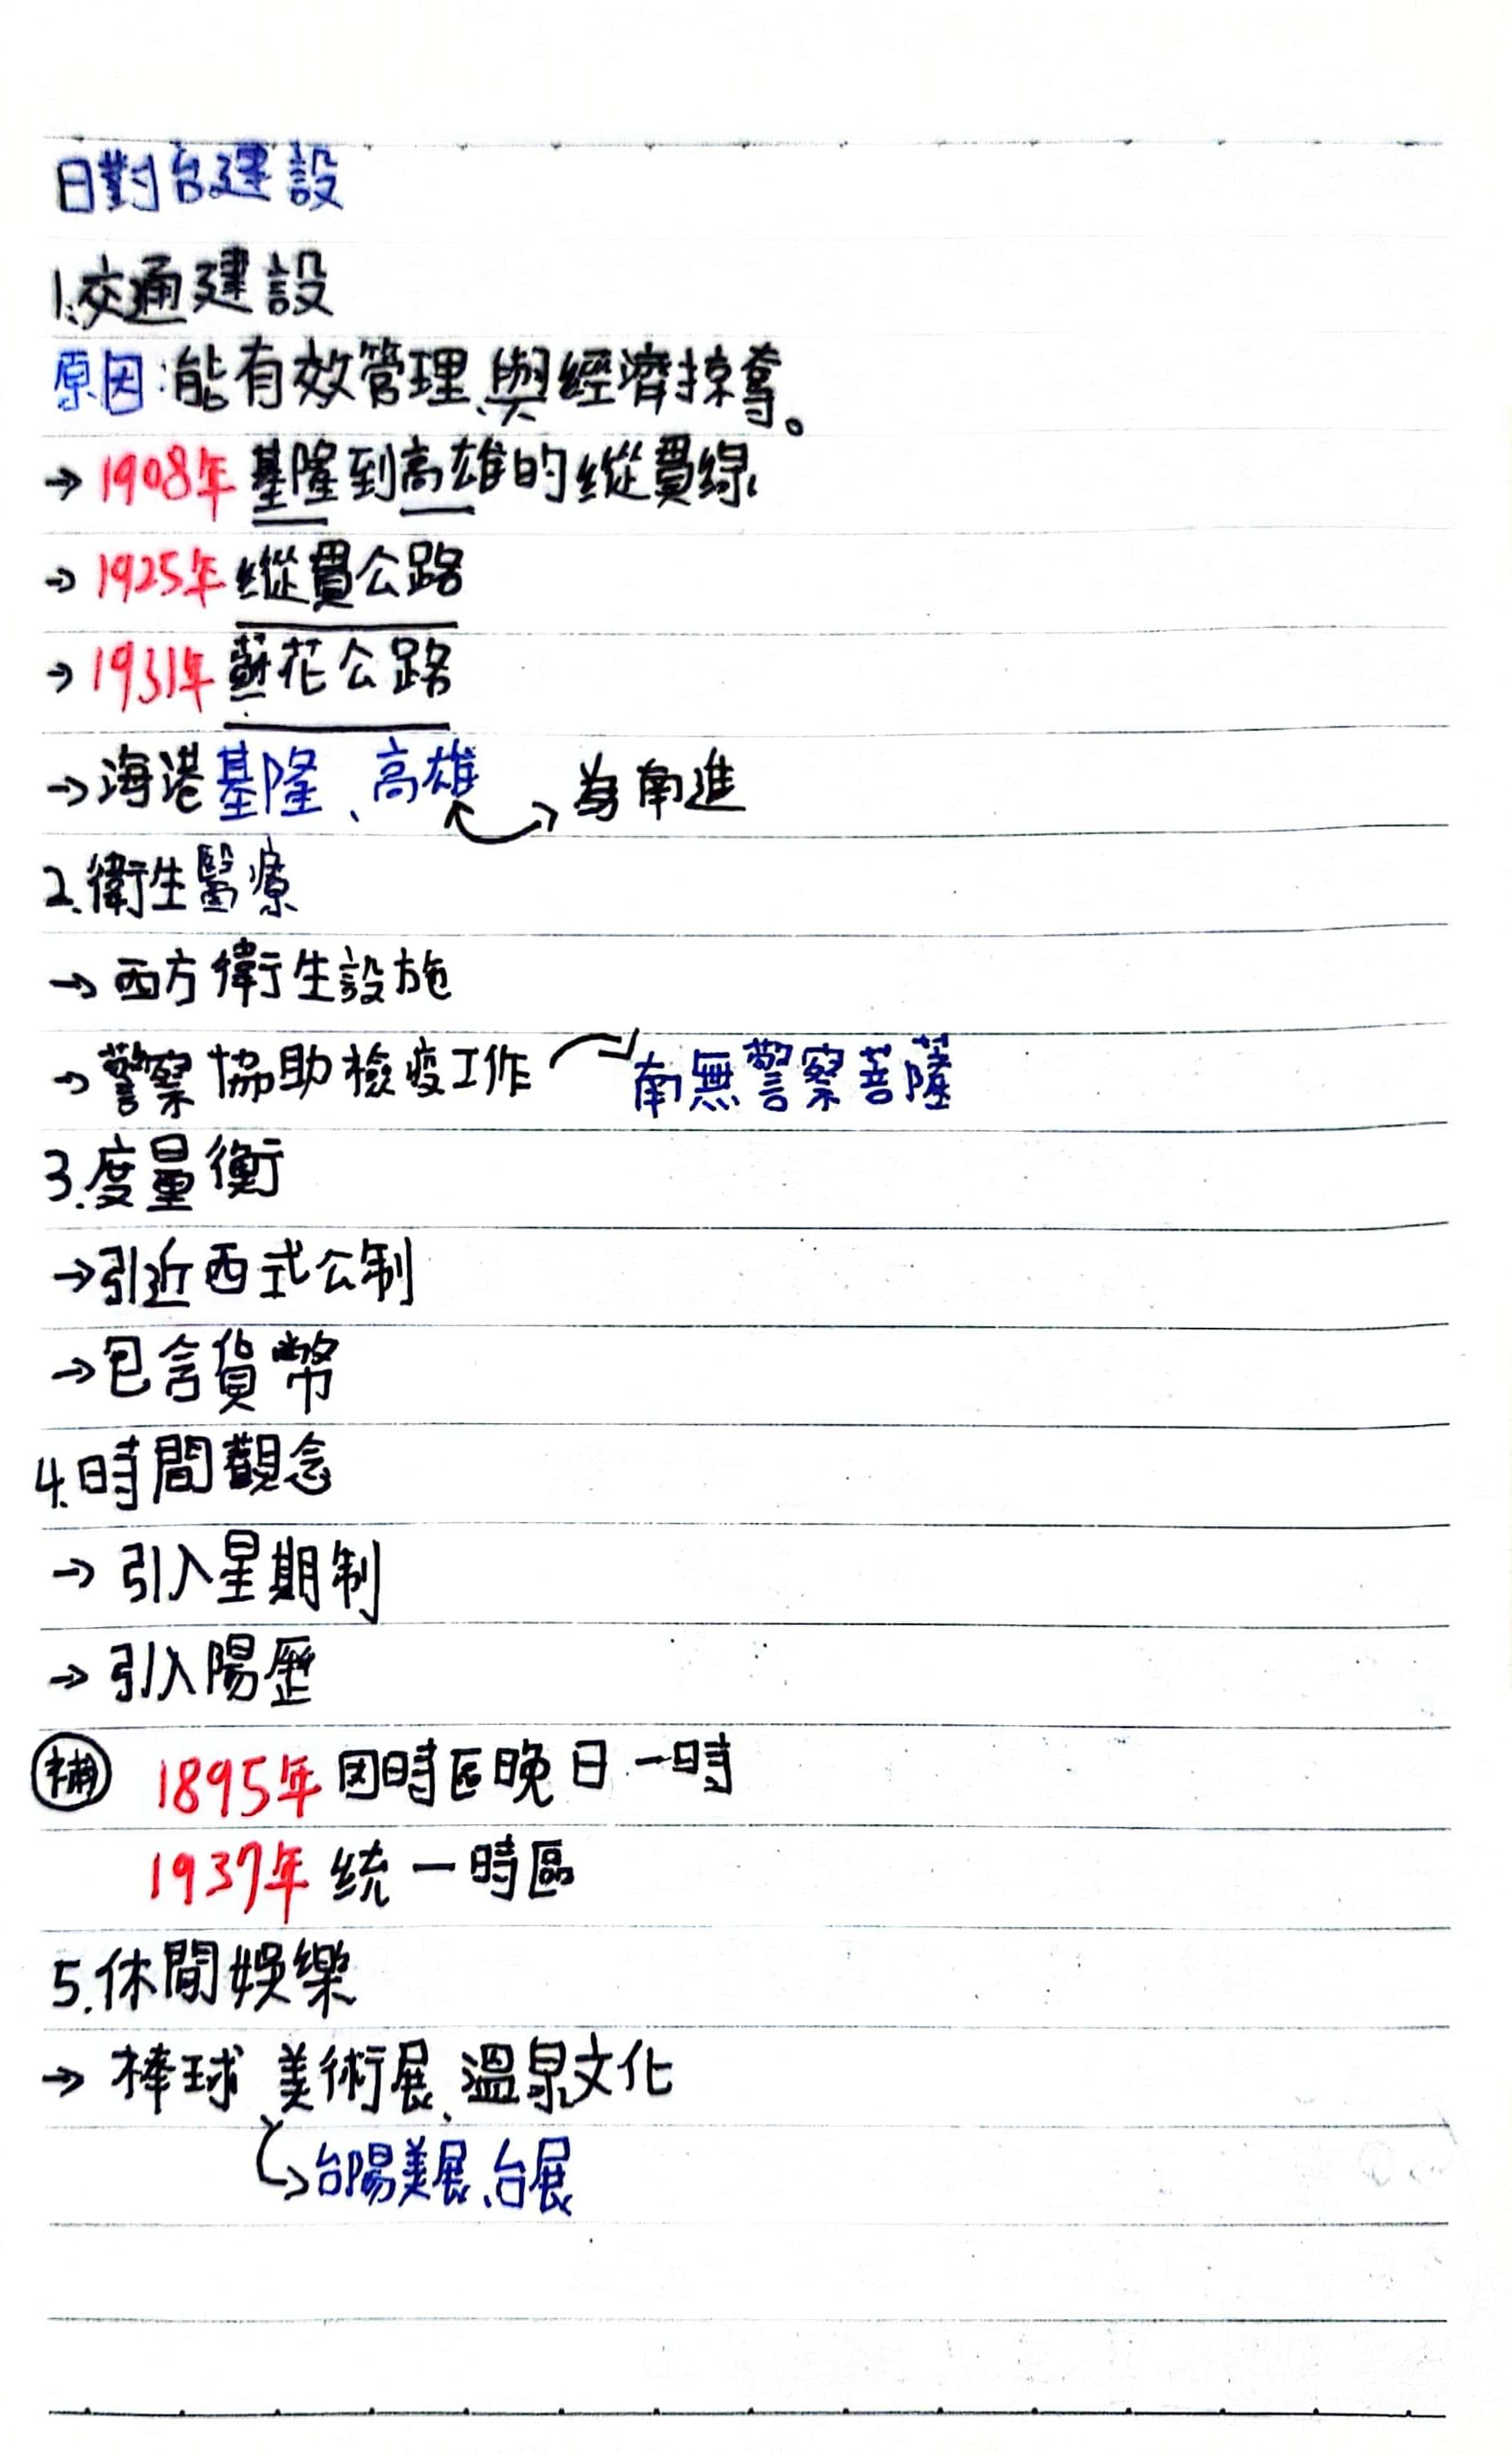 日對台建設
1.交通建設
原因:能有效管理、與經濟掠奪。
→1908年 基隆到高雄的縱貫線
→1925年 縱貫公路
→1931年 蘇花公路
→海港基隆、高雄 為南進
2.衛生醫療
→西方衛生設施
→警察協助檢疫工作 南無警察菩薩
3.度量衡
→引近西式公制
→包含貨幣
4.時間觀念
→引入星期制
→引入陽歷
補 1895年 因時區晚日一時
1937年 統一時區
5.休閒娛樂
→棒球 美術展、溫泉文化
台陽美展、台展